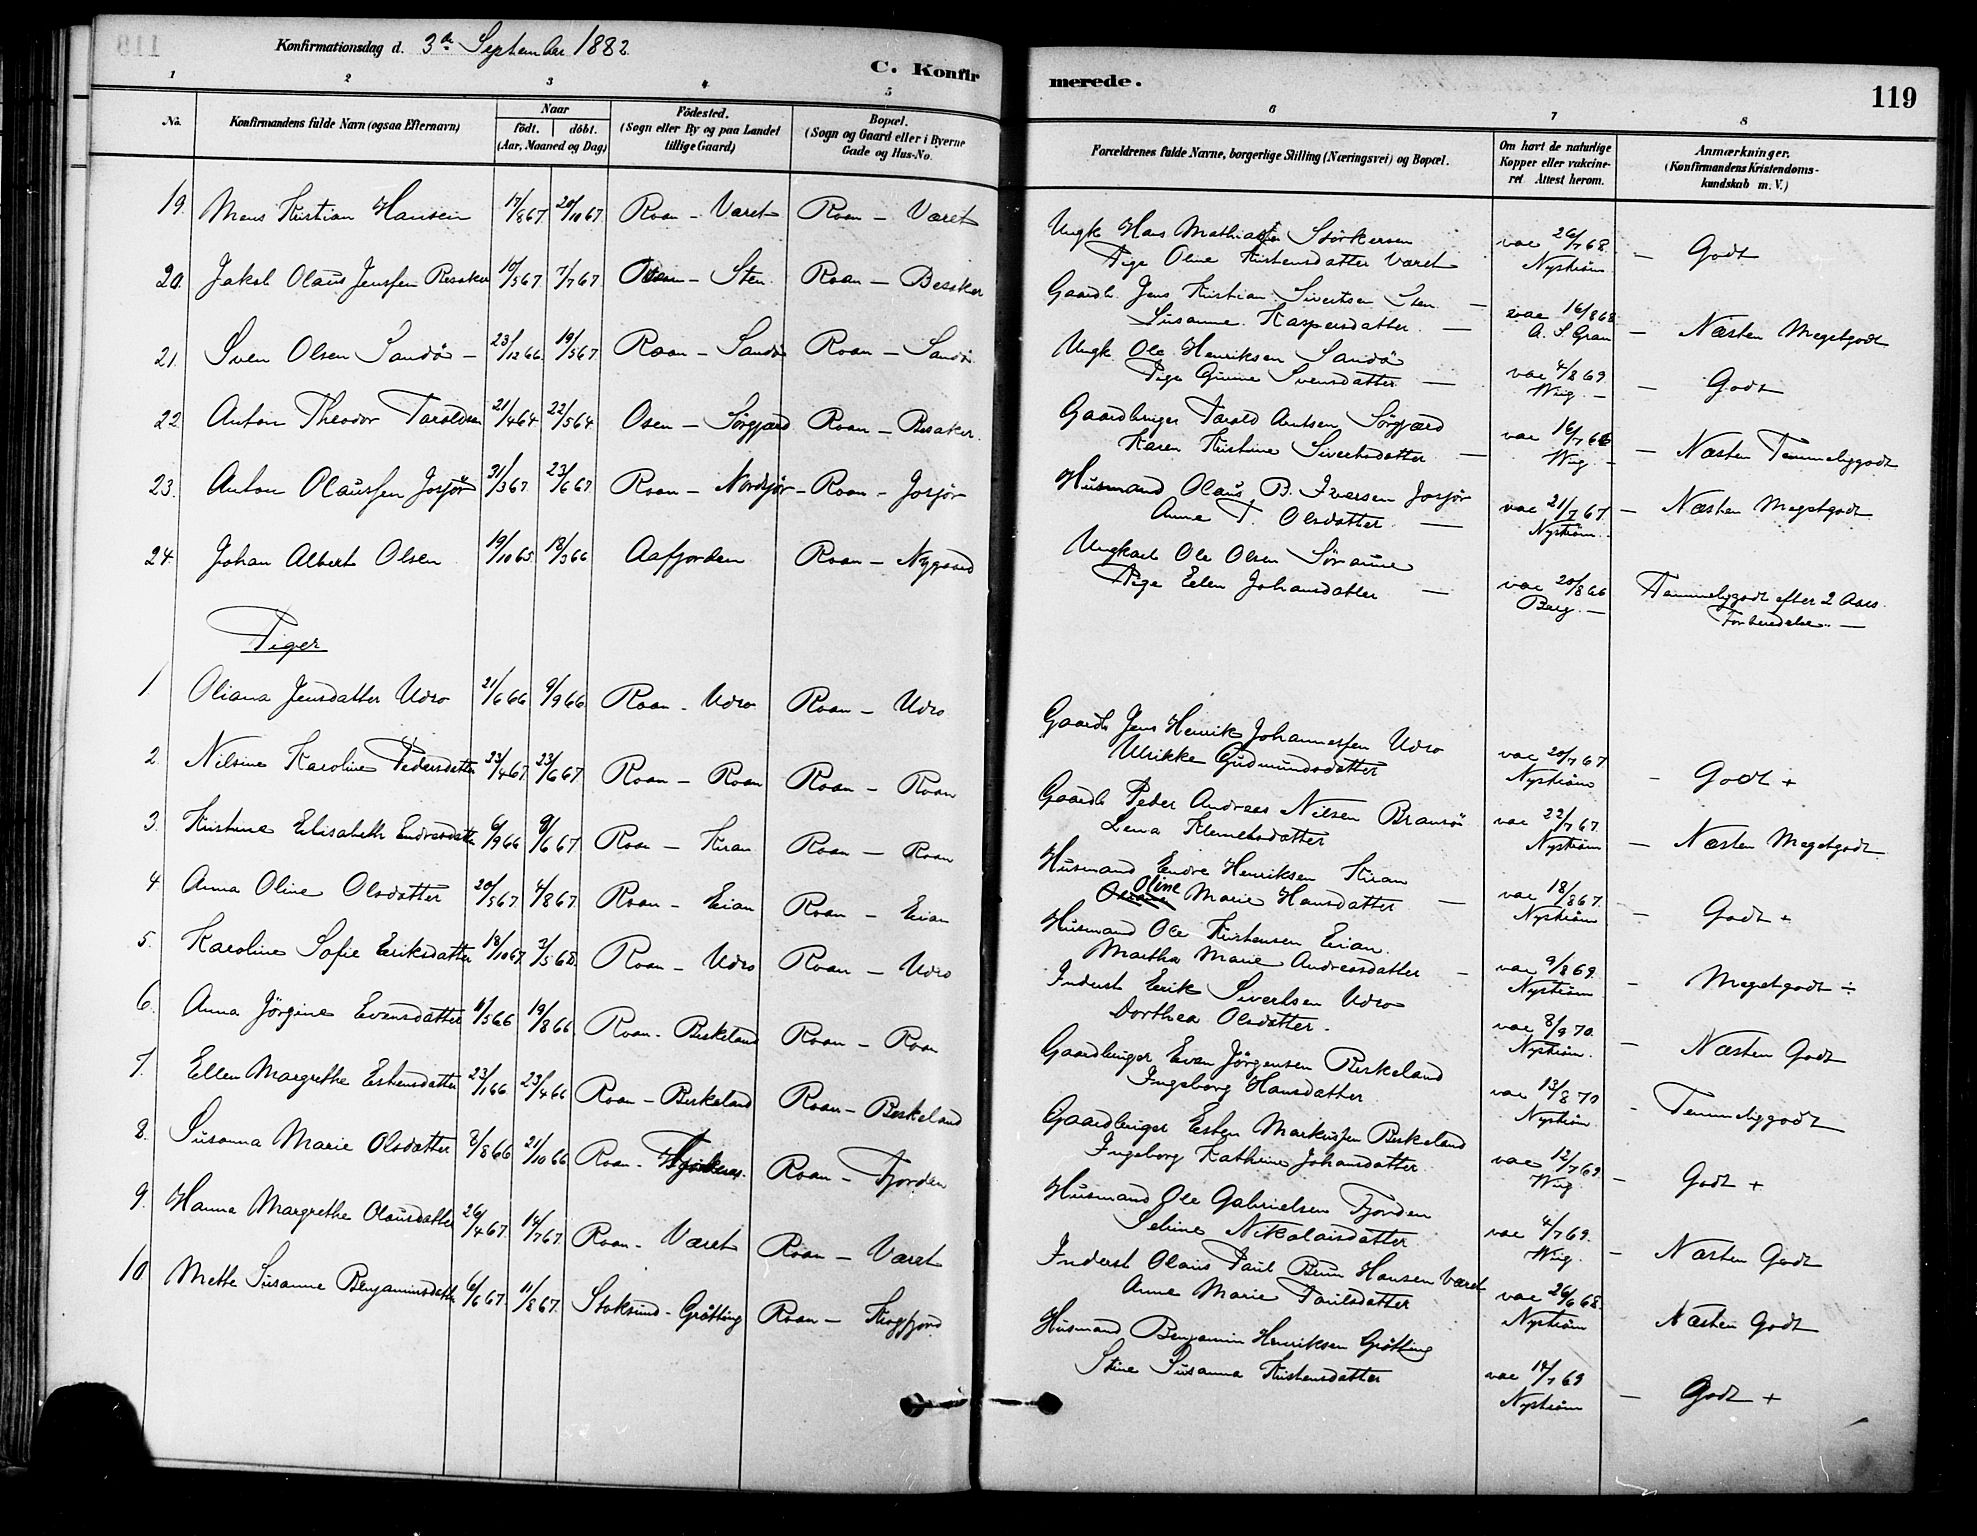 Konfirmationsdag d. 3die September 1882
C. Konfirmerede.
119
1 2 3 4 5 6 7 8
No.
Konfirmandens fulde Navn (ogsaa Efternavn)
Naar
födt. döbt.
(Aar, Maaned og Dag)
Födested.
(Sogn eller By og paa Landet
tillige Gaard)
Bopæl.
(Sogn og Gaard eller i Byerne
Gade og Hus-No.
Forældrenes fulde Navne, borgerlige Stilling (Næringsvei) og Bopæl.
Om havt de naturlige
Kopper eller vakcine-
ret Attest herom.
Anmærkninger.
(Konfirmandens Kristendoms-
kundskab m. V.)
19. Mens Kristian Hansen 17/8 67. 20/10 67. Roan - Været Roan - Været
Ungk Hans Mathias Störkersen vac 26/7 68. - Godt
Pige Oline Kristensdatter Været Nyström
20. Jakob Olaus Jenssen Besaker 17/5 67. 7/7 67. Roan - Sten. Roan - Besaker
Gaardb. Jens Kristian Sivertsen Sten - vac 16/8 68. - Næsten Megetgodt
Susanne Kaspersdatter - A. S. Gran
21. Sven Olsen Sandö - 23/12 66. 19/5 67. Roan - Sandö Roan - Sandö.
Ungk. Ole Henriksen Sandö vac 4/8 69. - Godt
Pige Gurine Svensdatter - Wiig. -
22. Anton Theodor Taraldsen 21/4 64. 22/5 64. Osen - Sörgjærd Roan - Besaker.
Gaardbruger Tarald Antsen Sörgjærd vac 16/7 66 - Næsten Temmeliggodt
Karen Kristine Sivertsdatter - Wiig. -
23. Anton Olaussen Josjör 31/3 67. 23/6 67. Roan - Nordsjör - Roan - Josjör
Husmand Olaus B. Iversen Josjör vac 21/7 67. - Næsten Megetgodt
Anne T. Olsdatter. - Nyström.
24. Johan Albert Olsen 19/10 65. 18/3 66 Aafjorden Roan - Nygaard
Ungkarl Ole Olsen Söraune vac 20/8 66 Temmeliggodt efter 2 Aars.
Pige Ellen Johansdatter - Berg. - Forberedelse. -
Piger
1 Oliana Jensdatter Udro 21/6 66 9/9 66 Roan - Udro Roan - Udro
Gaardb Jens Henrik Johannessen Udro vac 20/7 67 - Godt +
Ulrikke Gudmundsdatter Nyström
2. Nilsine Karoline Pedersdatter 23/4 67. 23/6 67. Roan - Roan Roan - Roan
Gaardb Peder Andreas Nilsen Bransö vac 22/7 67. - Næsten Megetgodt.
Lena Klemetsdatter Nyström
3. Kristine Elisabeth Endresdatter 6/9 66 9/6 67. Roan - Kiran Roan - Roan
Husmand Endre Henriksen Kiran vac 18/8 67. - Godt +
Oline Marie Hansdatter - Nyström
4 Anna Oline Olsdatter 20/5 67. 4/8 67. Roan - Eian Roan - Eian
Husmand Ole Kristensen Eian. vac 9/8 69. - Megetgodt ÷
Martha Marie Andreasdatter - Nyström
5. Karoline Sofie Eriksdatter 18/10 67. 3/5 68. Roan - Udro Roan - Udro
Inderst Erik Sivertsen Udro vac 8/9 70. - Næsten Godt
Dorthea Olsdatter. Nyström.
6. Anna Jörgine Evensdatter 11/5 66 19/8 66 Roan - Beskeland Roan - Roan
Gaardbruger Even Jörgensen Beskeland vac 13/8 70 - Temmeliggodt
Ingeborg Hansdatter Nyström.
7. Ellen Margrethe Estensdatter 23/1 66 23/4 66 Roan - Beskeland Roan - Beskeland
Gaardbruger Esten Markussen Beskeland vac 12/7 69. - Godt +
Ingeborg Kathrine Johansdatter. Wiig.
8. Susanna Marie Olsdatter 8/8 66 21/10 66. Roan - Roan - Fjorden
Husmand Ole Gabrielsen Fjorden vac 4/7 69. - Næsten Godt
Seline Nikolaisdatter Wiig.
9. Hanna Margrethe Olausdatter 26/4 67. 14/7 67. Roan - Været Roan - Været
Inderst Olaus Paul Hansen Været vac 26/6 68. Næsten Godt
Anne Marie Paulsdatter Nyström
10. Mette Susanne Benjaminsdatter 6/6 67. 11/8 67. Stoksund - Gråtting Roan - Krogfjord
Husmand Benjamin Henriksen Gråtting vac 14/7 69 - Godt +
Stine Susanna Kristensdatter Nyström